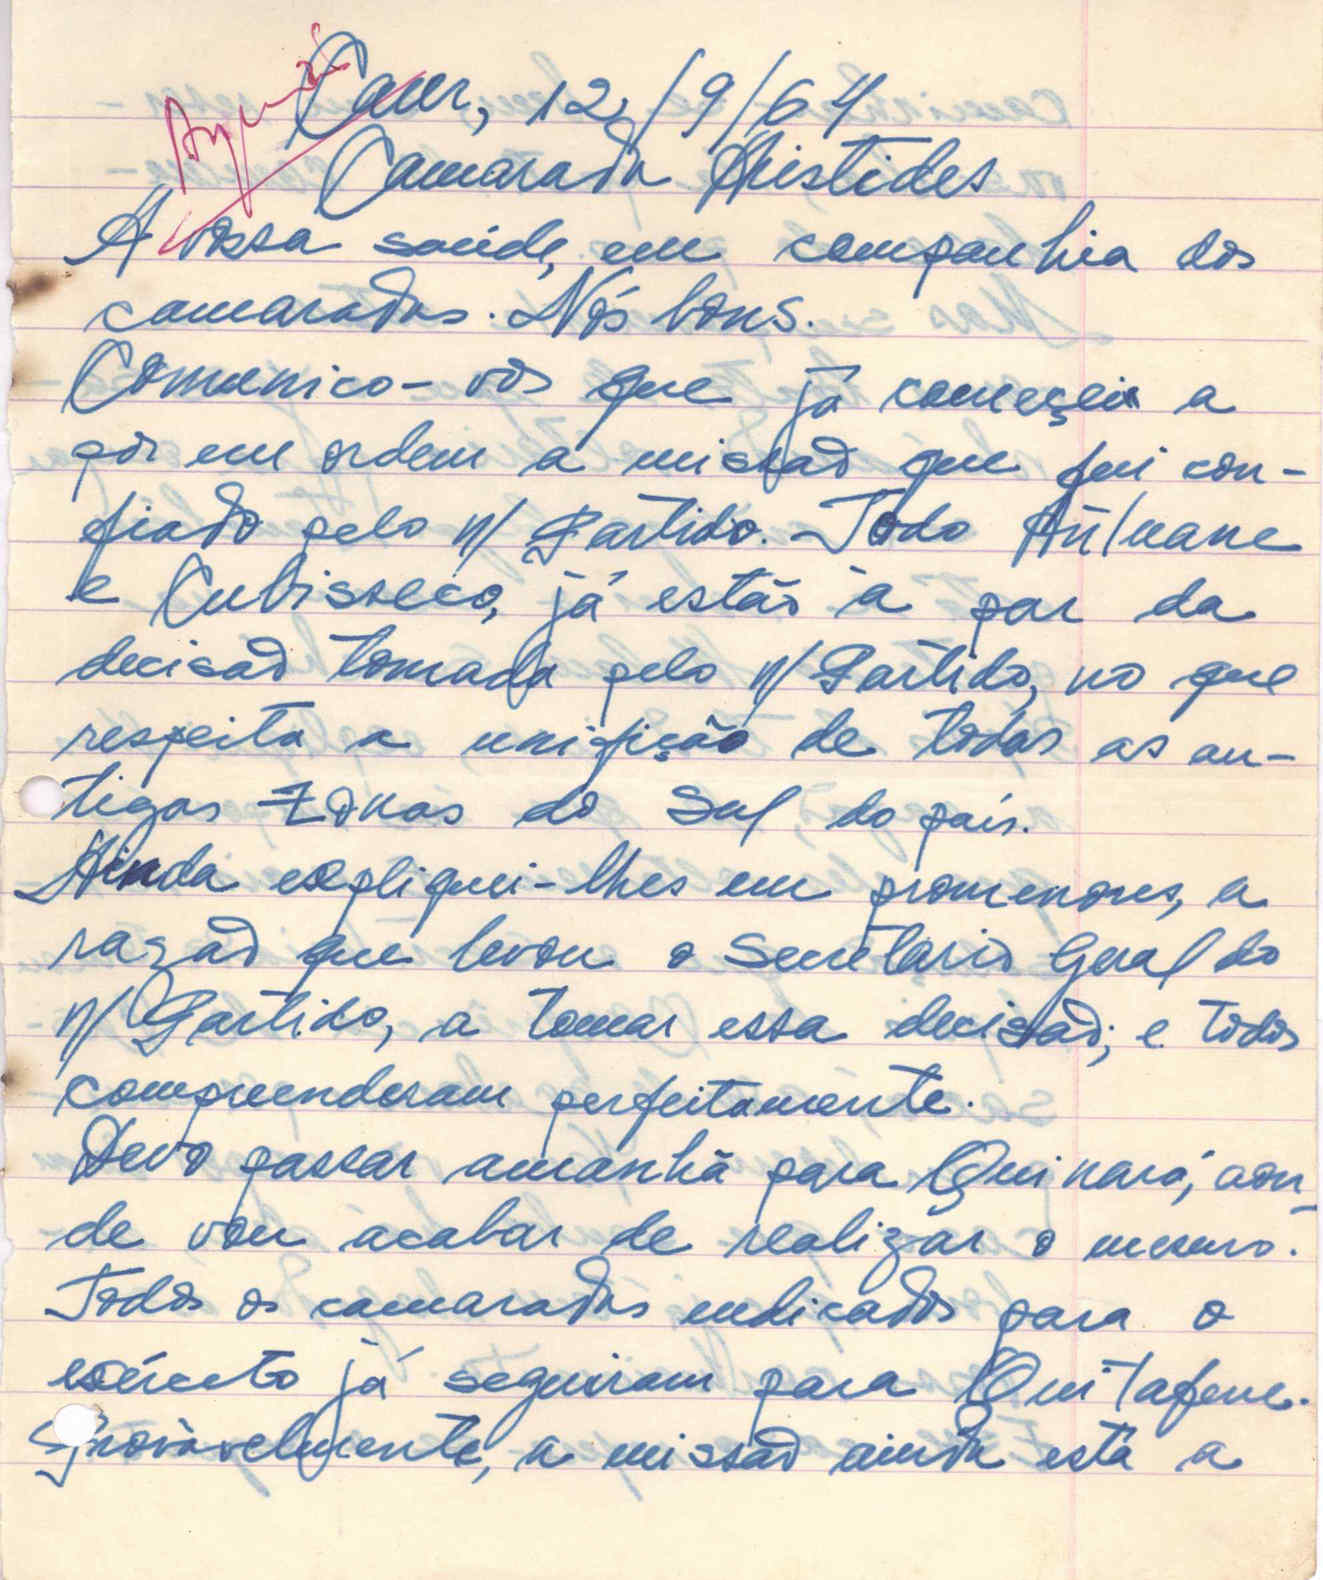 Caur, 12/9/64
Camarada Aristides
A vossa saúde, em companhia dos
camaradas. Nós bons.
Comunico-vos que já começei a
pôr em ordem a missão que fui con-
fiado pelo n/ Partido. Todo
e Cubisseco, já estão à par da
decisão tomada pelo n/ Partido, no que
respeita a unifição de todas as an-
tigas zonas do Sul do país.
Ainda expliquei-lhes em promenores, a
razão que levou o Secretario Geral do
n/ Partido, a tomar essa decisão; e todos
compreenderam perfeitamente.
Devo passar amanhã para Quinara, aon-
de vou acabar de realizar o mesmo.
Todos os camaradas indicados para o
exército já seguiram para Quitafene.
Provàvelmente, a missão ainda está a